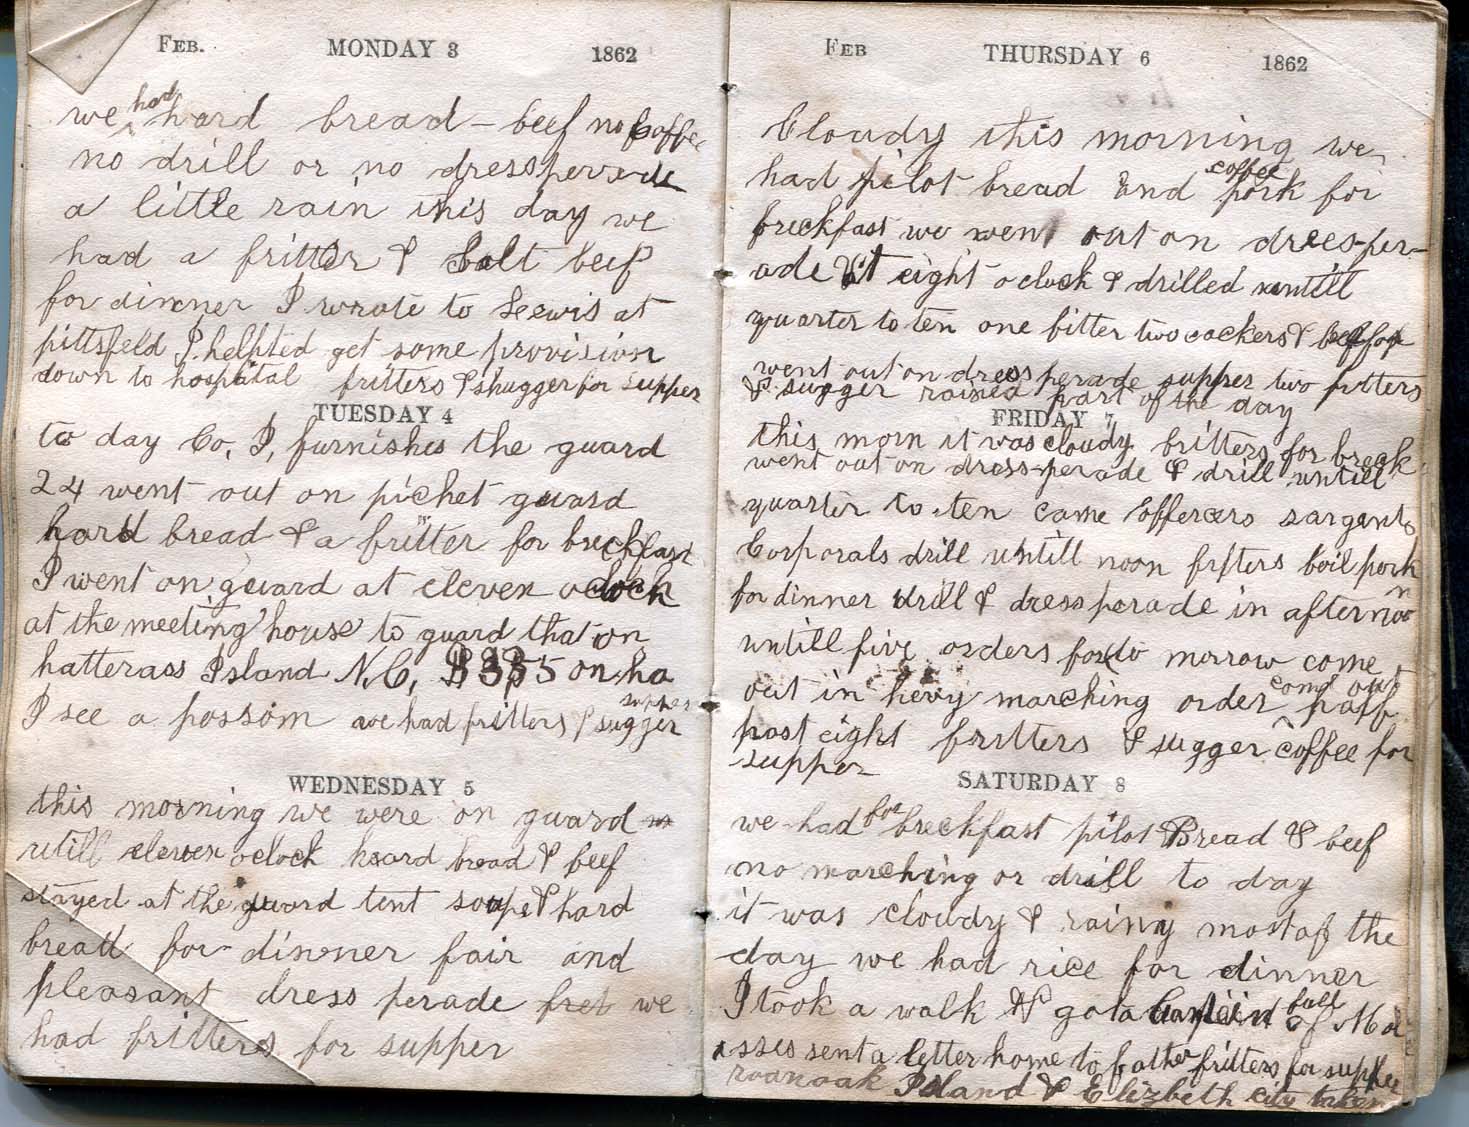 FEB. MONDAY 3 1862
we had hard bread - beef no Coffee
no drill or no dressperade
a little rain this day we
had a fritter & Salt beef
for dinner I wrote to Leewis at
pittsfeld I helpted get some provision
down to hospital fritters & shugger for supper
TUESDAY 4
to day Co, I, furnishes the guard
24 went out on picket guard
hard bread & a fritter for breckfast
I went on guard at eleven oclock
at the meeting house to guard that on
hatterass Island N.C, on ha
I see a possom we had fritters & sugger
supper
WEDNESDAY 5
this morning we were on guard
utill eleven oclock hard bread & beef
stayed at the guard tent soupe & hard
bread for dinner fair and
pleasant dress perade we
had fritters for supper
FEB THURSDAY 6 1862
Cloudy this morning we
had pilot bread and coffee pork for
breckfast we went out on drees-per-
ade at eight oclock & drilled untill
quarter to ten one fitter two cackers & beef for
went out on dress perade supper two fritters
& sugger rained part of the day
FRIDAY 7
this morn it was cloudy fritters for breck
went out on dress-perade & drill untill
quarter to ten came offercers sargents
Corporals drill untill noon fritters boil pork
for dinner drill & dressperade in afternoon
untill five orders for to morrow come
out in hevy marching order come out haff
past eight fritters & sugger coffee for
supper
SATURDAY 8
we had for breckfast pilot Bread & beef
no marching or drill to day
it was cloudy & rainy most of the
day we had rice for dinner
I took a walk & got a full of Mol
asses sent a letter home to father fritters for supper
roanoak Island & Elizbeth city taken